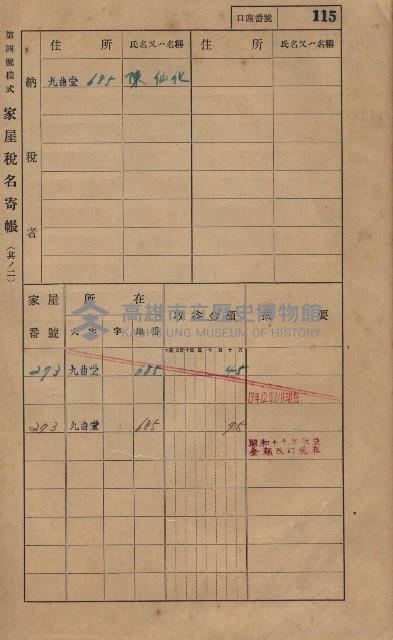 口座番號 115
第四號樣式 家屋稅名寄帳 (其ノ二)
納稅者
住所 氏名又ハ名稱 住所 氏名又ハ名稱
九曲堂 685 陳仙化
家屋番號 所在 收益金額 摘要
大字 字 地番
高雄市立歷史博物館
KAOHSIUNG MUSEUM OF HISTORY
273 九曲堂 685 45
273 九曲堂 685 95
昭和十九年
金額改訂現在